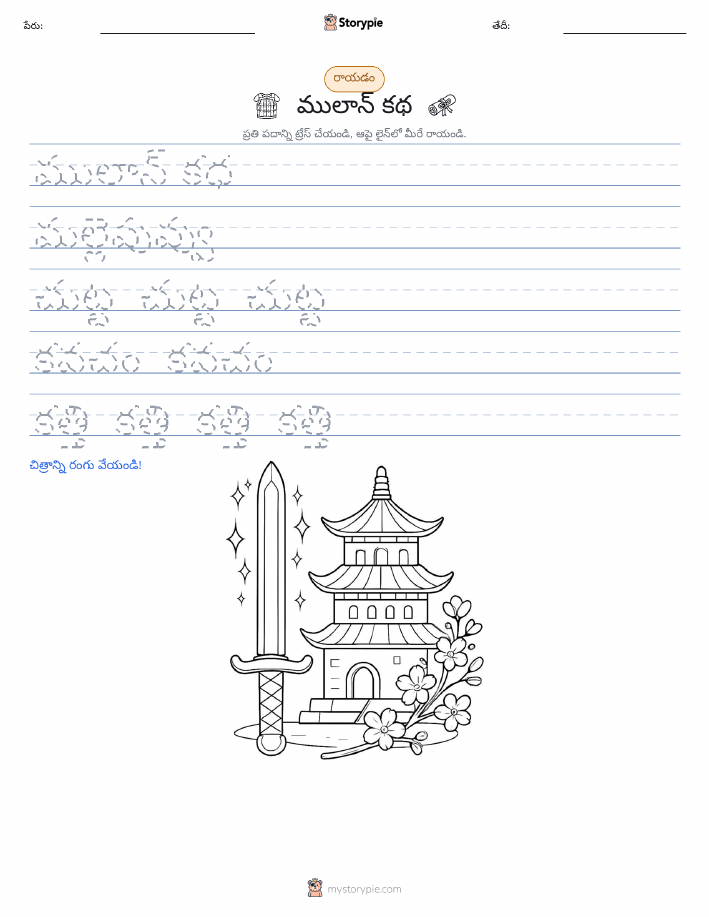 పేరు:
Storypie
తేదీ:
రాయడం
ములాన్ కథ
ప్రతి పదాన్ని ట్రేస్ చేయండి, ఆపై లైన్‌లో మీరే రాయండి.
ములాన్ కథ
మల్లెపువ్వు
చుట్ట చుట్ట చుట్ట
కవచం కవచం
కత్తి కత్తి కత్తి కత్తి
చిత్రాన్ని రంగు వేయండి!
mystorypie.com